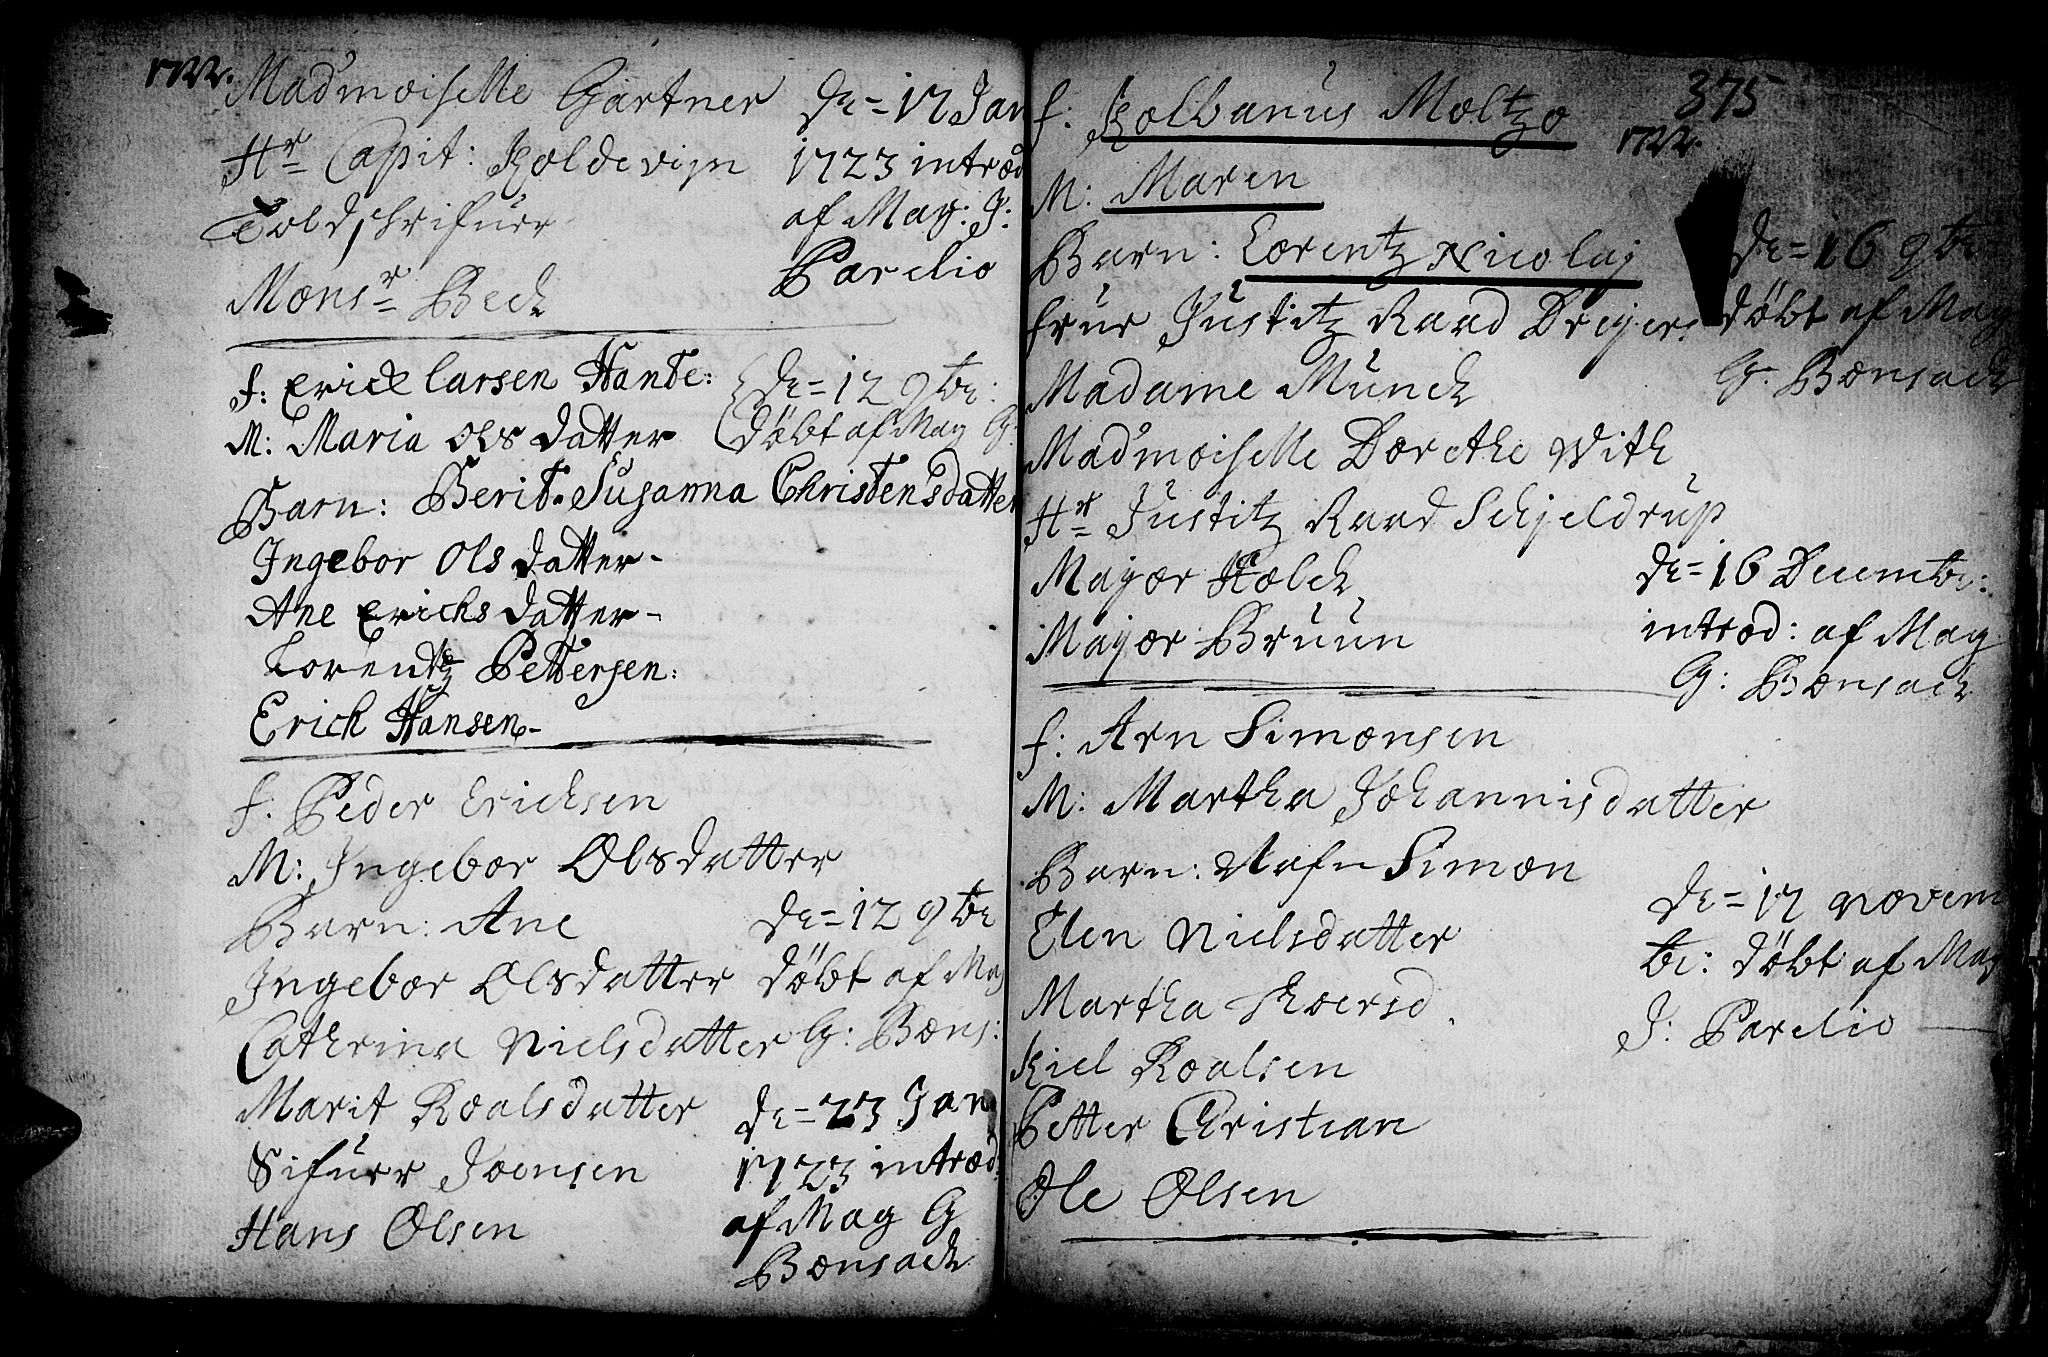 1722.
Madmoiselle Gartner
Hr Capit: Koldevijn
Told skrifuer
Monsr Beck
De= 17 Jan
1723 introd
af Mag: J:
Parelio
f: Erick Larsen Hante:
M: Maria Ols datter
Barn: Berit. Susanna Christensdatter
Ingebor Ols datter-
Ane Erichs datter-
Lorentz Pettersen:
Erick Hansen-
De= 12 9br:
döbt af Mag G
f: Peder Erichsen
M: Ingebor Olsdatter
Barn: Ane
Ingebor Olsdatter
Catherina Nielsdatter
Marit Roalsdatter
Sifuer Joensen
Hans Olsen
De= 12 9br
döbt af Mag
G: Bons:
De= 23 Jan
1723 introd
af Mag G
Bonsack
375
1722.
f: Kolbanus Moltzo
M: Maren
Barn: Lorentz Nicolaj
frue Justitz Raad Dreijers
Madame Münck
Madmoiselle Dorethe With
Hr Justitz Raad Schjeldrup
Majoer Holck
Majoer Bruun
De= 16 9br
döbt af Mag
G. Bonsack
De= 16 Decembr:
introd: af Mag
G: Bonsack
f: Arn Simonsen
M: Martha Johannisdatter
Barn: Nafn Simon
Elen Nielsdatter
Martha Thoersd
Kiel Roalsen
Petter Christian
Ole Olsen
De= 17 Novem
br: döbt af Mag
J: Parelio